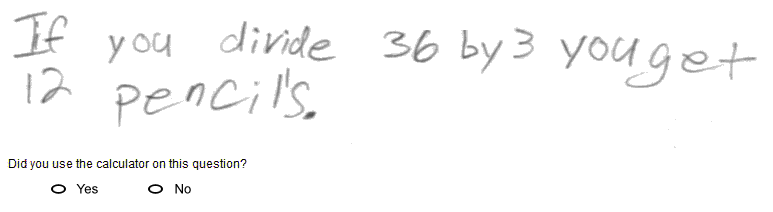 If you divide 36 by 3 you get
12 pencil's.
Did you use the calculator on this question?
Yes No